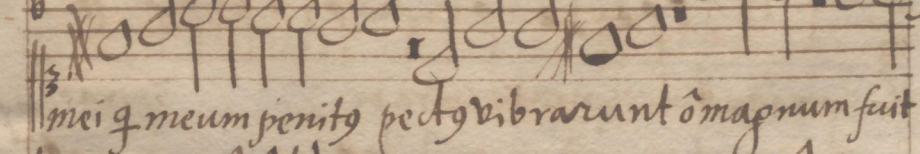 mei qͥ meum penitꝰ pectꝰ vibrarunt ô magnum fuit